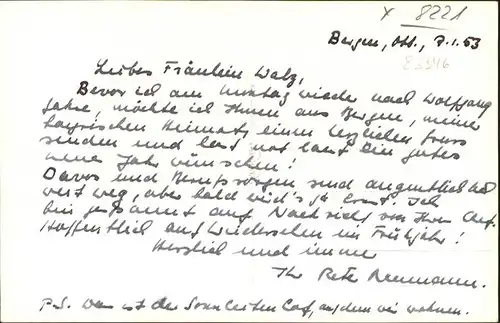 x 8221
Bergen, Obb., 7.1.53
83346
Liebes Fräulein Walz,
Bevor ich am Montag wieder nach Wolfgang
fahre, möchte ich Ihnen aus Bergen, meiner
bayrischen Heimat, einen herzlichen Gruss
senden und last not least ein gutes
neues Jahr wünschen!
Davos und Berufssorgen sind augenblicklich
weit weg, aber bald wird's ja Ernst. Ich
bin gespannt auf Nachricht von Ihrer
Hoffentlich auf Wiedersehen im Frühjahr!
Herzlich und immer
Ihr Peter Neumann.
P.S. Das ist der Café, aus dem wir wohnen.